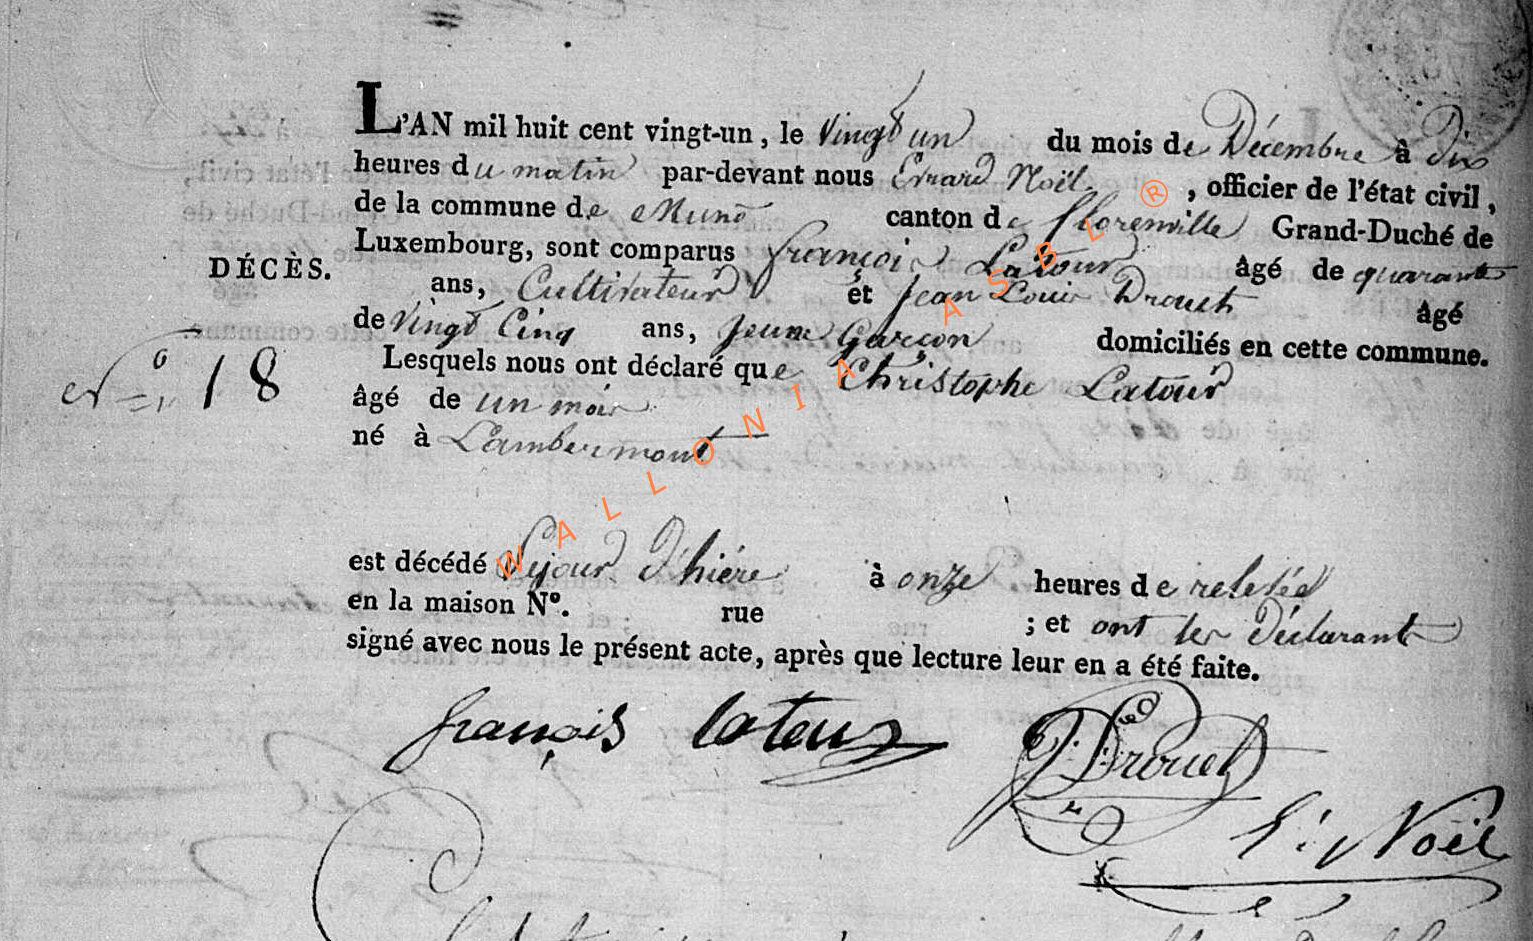 L'AN mil huit cent vingt-un, le Vingt un du mois de Décembre à dix
heures du matin par-devant nous Evrard Noël, officier de l'état civil,
de la commune de Muno canton de florenville Grand-Duché de
Luxembourg, sont comparus françois Latour âgé de quarante
DÉCÈS.
ans, Cultivateur et Jean Louis Drouet âgé
de Vingt Cinq ans, jeune Garçon domiciliés en cette commune.
N.° 18
Lesquels nous ont déclaré que Christophe Latour
âgé de un mois
né à Lambermont
est décédé le jour d'hiére à onze heures de relevée
en la maison N°. rue ; et ont les Déclarant
signé avec nous le présent acte, après que lecture leur en a été faite.
françois latour
J: Drouet
E: Noël
WALLONIA ASBL ®